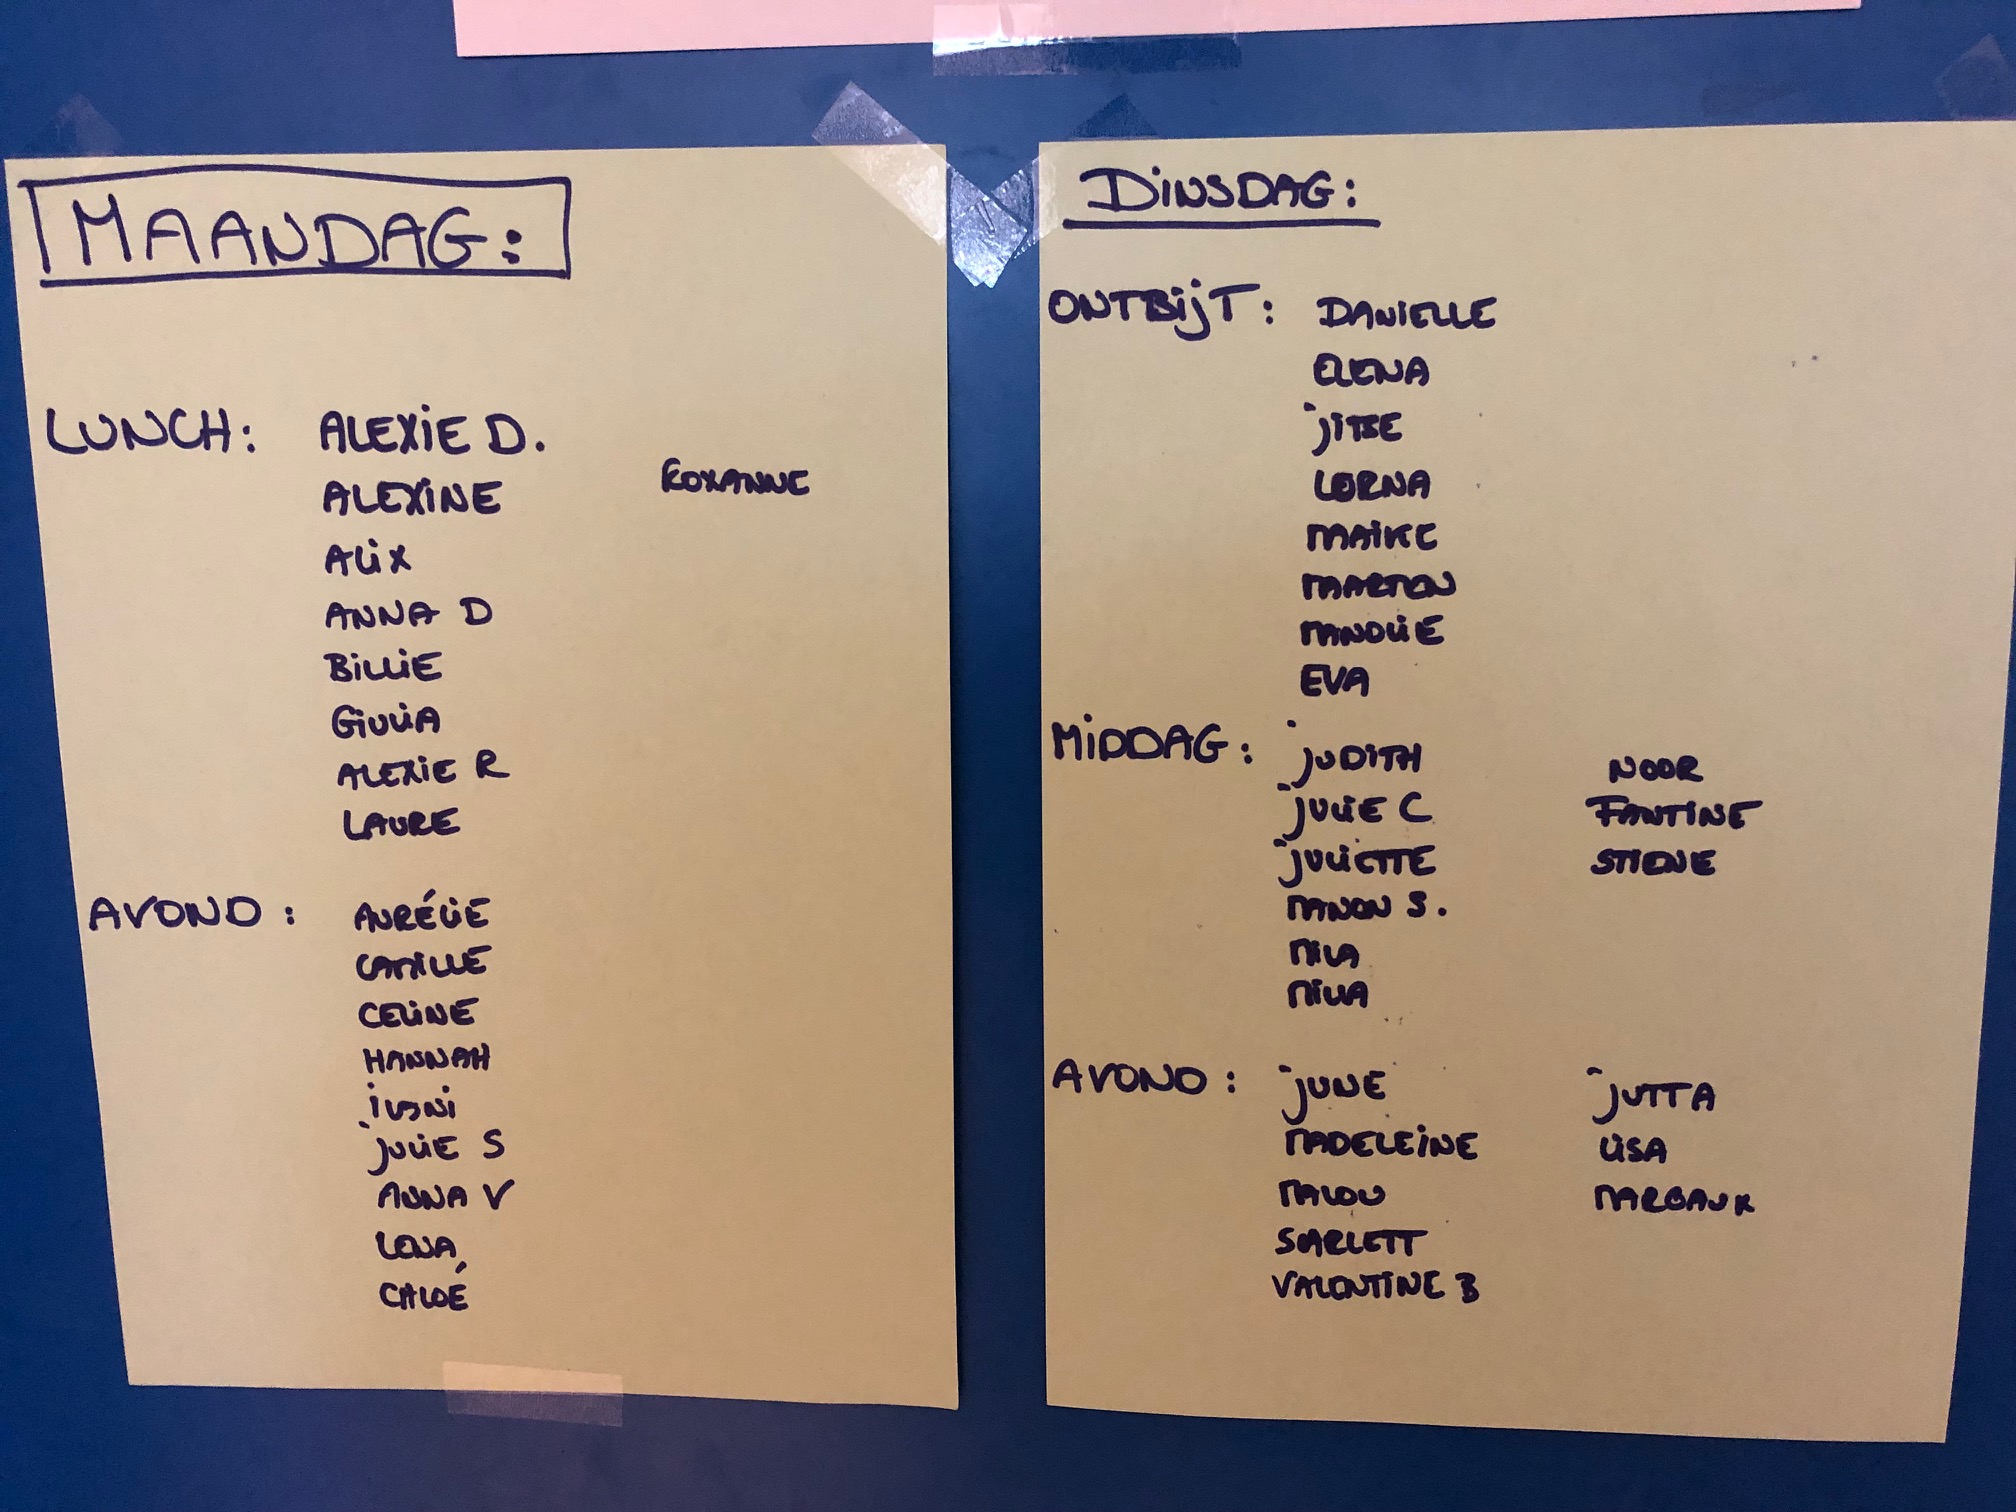 MAANDAG:
LUNCH: ALEXIE D.
ALEXINE ROXANNE
ALIX
ANNA D
BILLIE
GIULIA
ALEXIE R
LAURE
AVOND: AURÉLIE
CAMILLE
CELINE
HANNAH
JULIE S
ANNA V
LENA
CHLOÉ
DINSDAG:
ONTBIJT: DANIELLE
ELENA
JITSE
LORNA
MAIKE
MAARTEN
MANOLIE
EVA
MIDDAG: JUDITH NOOR
JULIE C FANTINE
JULIETTE STIENE
MANON S.
MILA
MILLA
AVOND: JUNE JUTTA
MADELEINE LISA
MALOU MARGAUX
SCARLETT
VALENTINE B